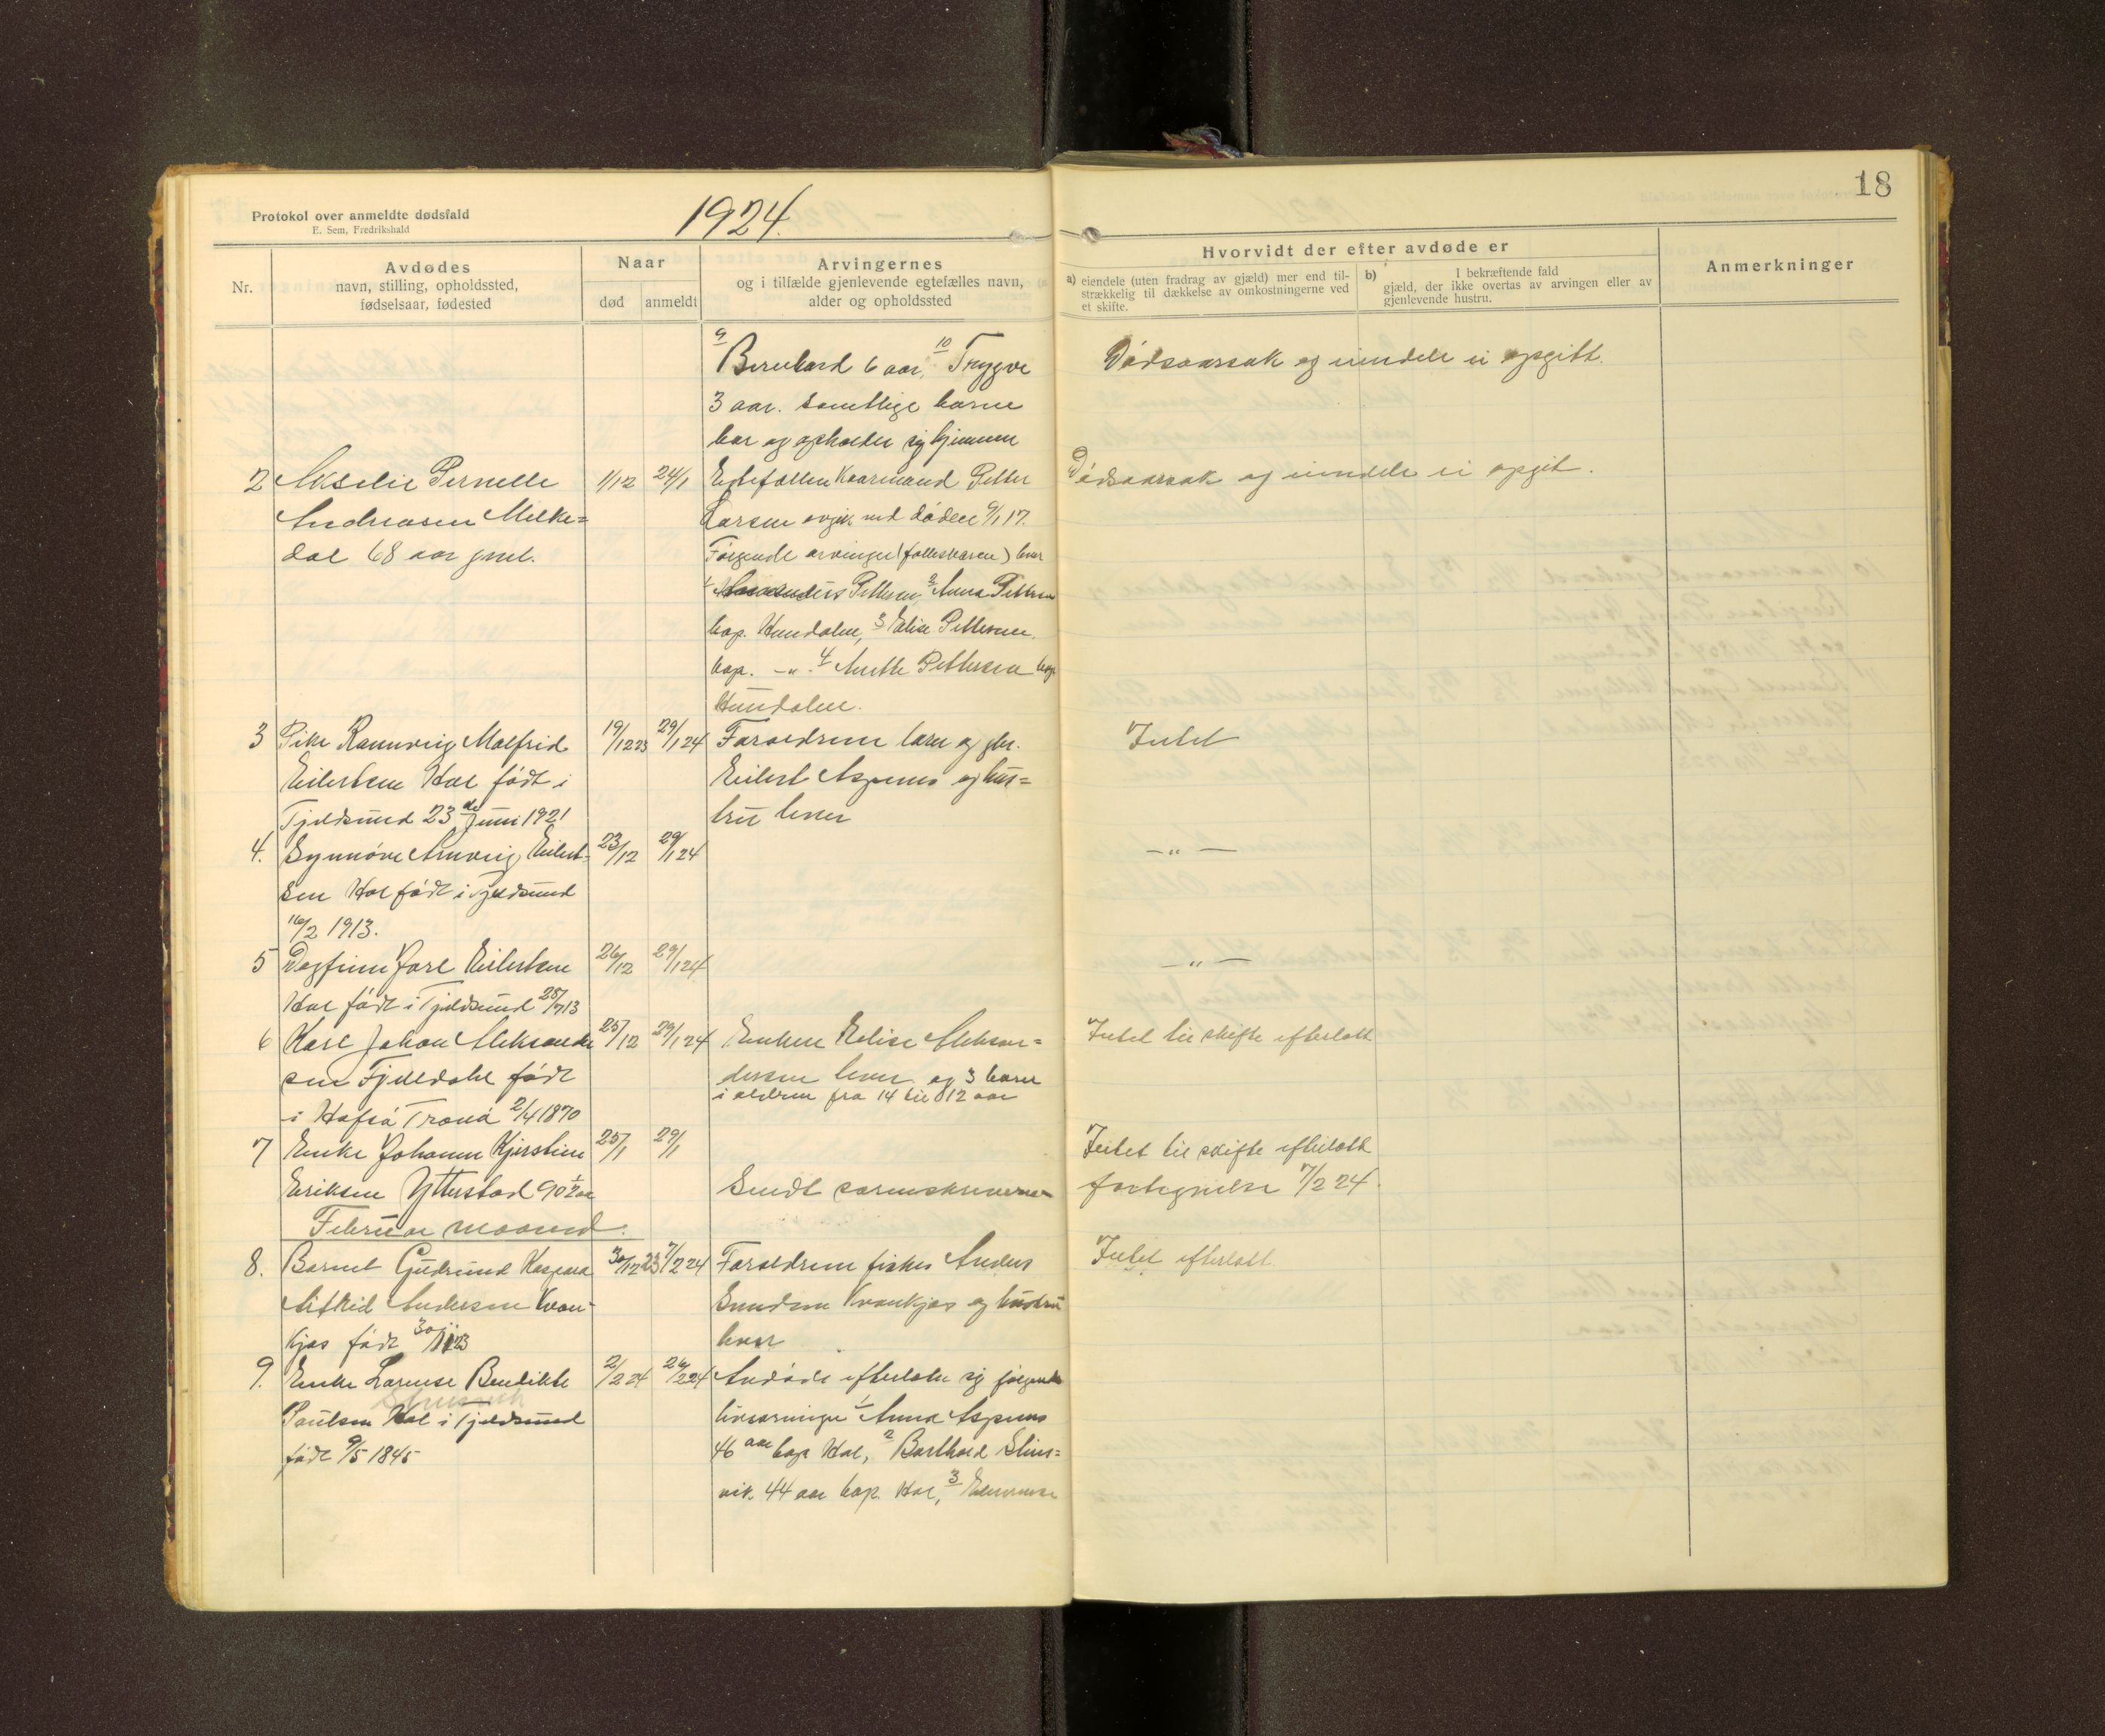 18
Protokol over anmeldte dødsfald
E. Sem, Fredrikshald
1924.
Nr.
Avdødes
navn, stilling, opholdssted,
fødselsaar, fødested
Naar
død
anmeldt
Arvingernes
og i tilfælde gjenlevende egtefælles navn,
alder og opholdssted
Hvorvidt der efter avdøde er
a) eiendele (uten fradrag av gjæld) mer end til-
strækkelig til dækkelse av omkostningerne ved
et skifte.
b) I bekræftende fald
gjæld, der ikke overtas av arvingen eller av
gjenlevende hustru.
Anmerkninger
9 Bernhard 6 aar, 10 Trygve
3 aar. samtlige barne
bor og opholder sig hjemme
Dødsaarsak og eiendele ei opgitt.
2 Akselie Pernelle
Andreasen Melke=
dal 68 aar gml.
1/12 24/1
Egtefællen Kaarmand Petter
Larsen avgik ved døden 9/1 17.
Følgende arvinger (fællesbaren) lever
1/ Petersen, 2 Anna Petersen
bop. Hundalen, 3 Elise Pettersen
bop. -"- 4 Anette Pettersen bop
Hundalen.
Dødsaarsak og eiendele ei opgit.
3 Pike Rannveig Malfrid
Eilertsen Hol født i
Tjeldsund 23de Juni 1921
19/12 23 29/1 24
Forældrene lærer og gbr.
Eilert Aspenes og hus=
tru lever
Intet
4. Synnøve Arnveig Eilert-
sen Hol født i Tjeldsund
16/2 1913.
23/12 29/1 24
-"-
5 Dagfinn Jarl Eilertsen
Hol født i Tjeldsund 25/7 13
26/12 29/1 24
-"-
6 Karl Johan Aleksander
sen Fjelldal født
i Hofså Tranø 2/4 1870
25/12 29/1 24
Enken Elise Aleksan=
dersen lever og 3 barn
i alderen fra 14 til 12 aar
Intet til skifte efterlatt
7 Enke Johanne Kjerstine
Eriksen Yttestad 90 1/2 aar
25/1 29/1
Sendt sorenskriveren
Intet til skifte efterlatt
fortegnelse 7/2 24.
Februar maaned.
8. Barnet Gudrund Kaspara
Astrid Andersen Kvan-
kjos født 30/11 23
30/12 23 7/2 24
Forældrene fisker Anders
Kvankjos og hustru
lever
Intet efterlatt
9. Enke Larense Bendikte
Paulsen Hol i Tjeldsund
født 9/5 1845
2/2 24 26/2 24
Avdøde efterlater sig følgende
livsarvinger 1 Anna Aspenes
46 aar bop Hol, 2 Barthold Stens=
vik 44 aar bop. Hol, 3